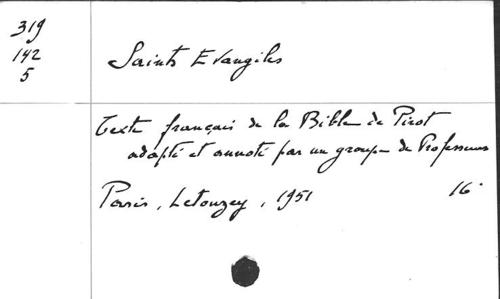 319
142
5
Saints Evangiles
Texte français de la Bible de Pirot
adapté et annoté par un groupe de Professeurs
Paris, Letouzey, 1951 16°